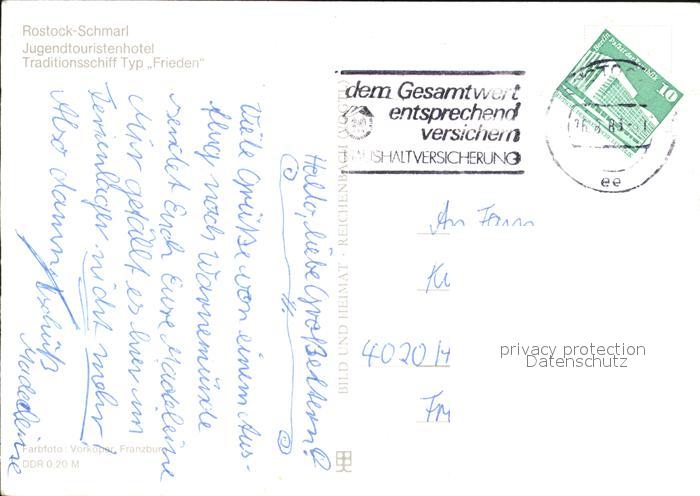 Rostock-Schmarl
Jugendtouristenhotel
Traditionsschiff Typ „Frieden"
Hallo, liebe Großeltern!
Viele Grüße von einem Aus-
flug nach Warnemünde
sendet Euch Eure Madeleine
Mir gefällt es hier im
Ferienlager nicht mehr!
Also dann, Tschüß
Madeleine
Farbfoto: Vorköper, Franzburg
DDR 0,20 M
BILD UND HEIMAT · REICHENBACH
dem Gesamtwert
entsprechend
versichern
HAUSHALTVERSICHERUNG
ee
Berlin Palast der Republik
10
An Fam
4020
privacy protection
Datenschutz